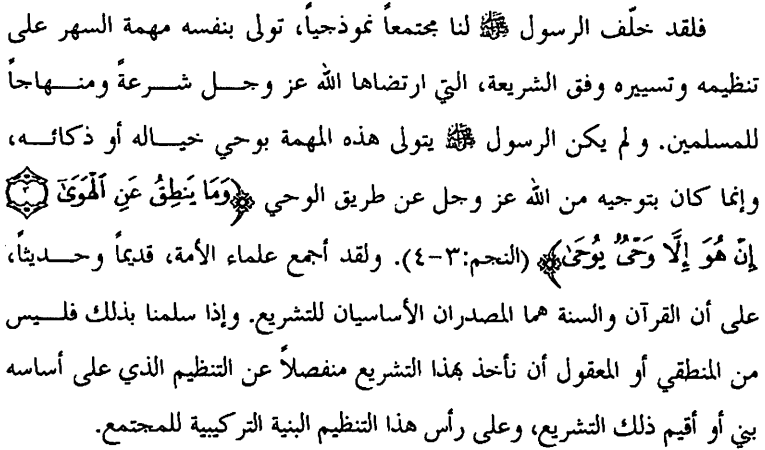 فلقد خلّف الرسول ﷺ لنا مجتمعاً نموذجياً، تولى بنفسه مهمة السهر على
تنظيمه وتسييره وفق الشريعة، التي ارتضاها الله عز وجــل شــرعةً ومنــهاجاً
للمسلمين. و لم يكن الرسول ﷺ يتولى هذه المهمة بوحي خيــاله أو ذكائــه،
وإنما كان بتوجيه من الله عز وجل عن طريق الوحي ﴿وَمَا يَنطِقُ عَنِ ٱلْهَوَىٰٓ ۝٣
إِنْ هُوَ إِلَّا وَحْىٌ يُوحَىٰ﴾ (النجم:٣-٤). ولقد أجمع علماء الأمة، قديماً وحــديثاً،
على أن القرآن والسنة هما المصدران الأساسيان للتشريع. وإذا سلمنا بذلك فلــيس
من المنطقي أو المعقول أن نأخذ بهذا التشريع منفصلاً عن التنظيم الذي على أساسه
بني أو أقيم ذلك التشريع، وعلى رأس هذا التنظيم البنية التركيبية للمجتمع.